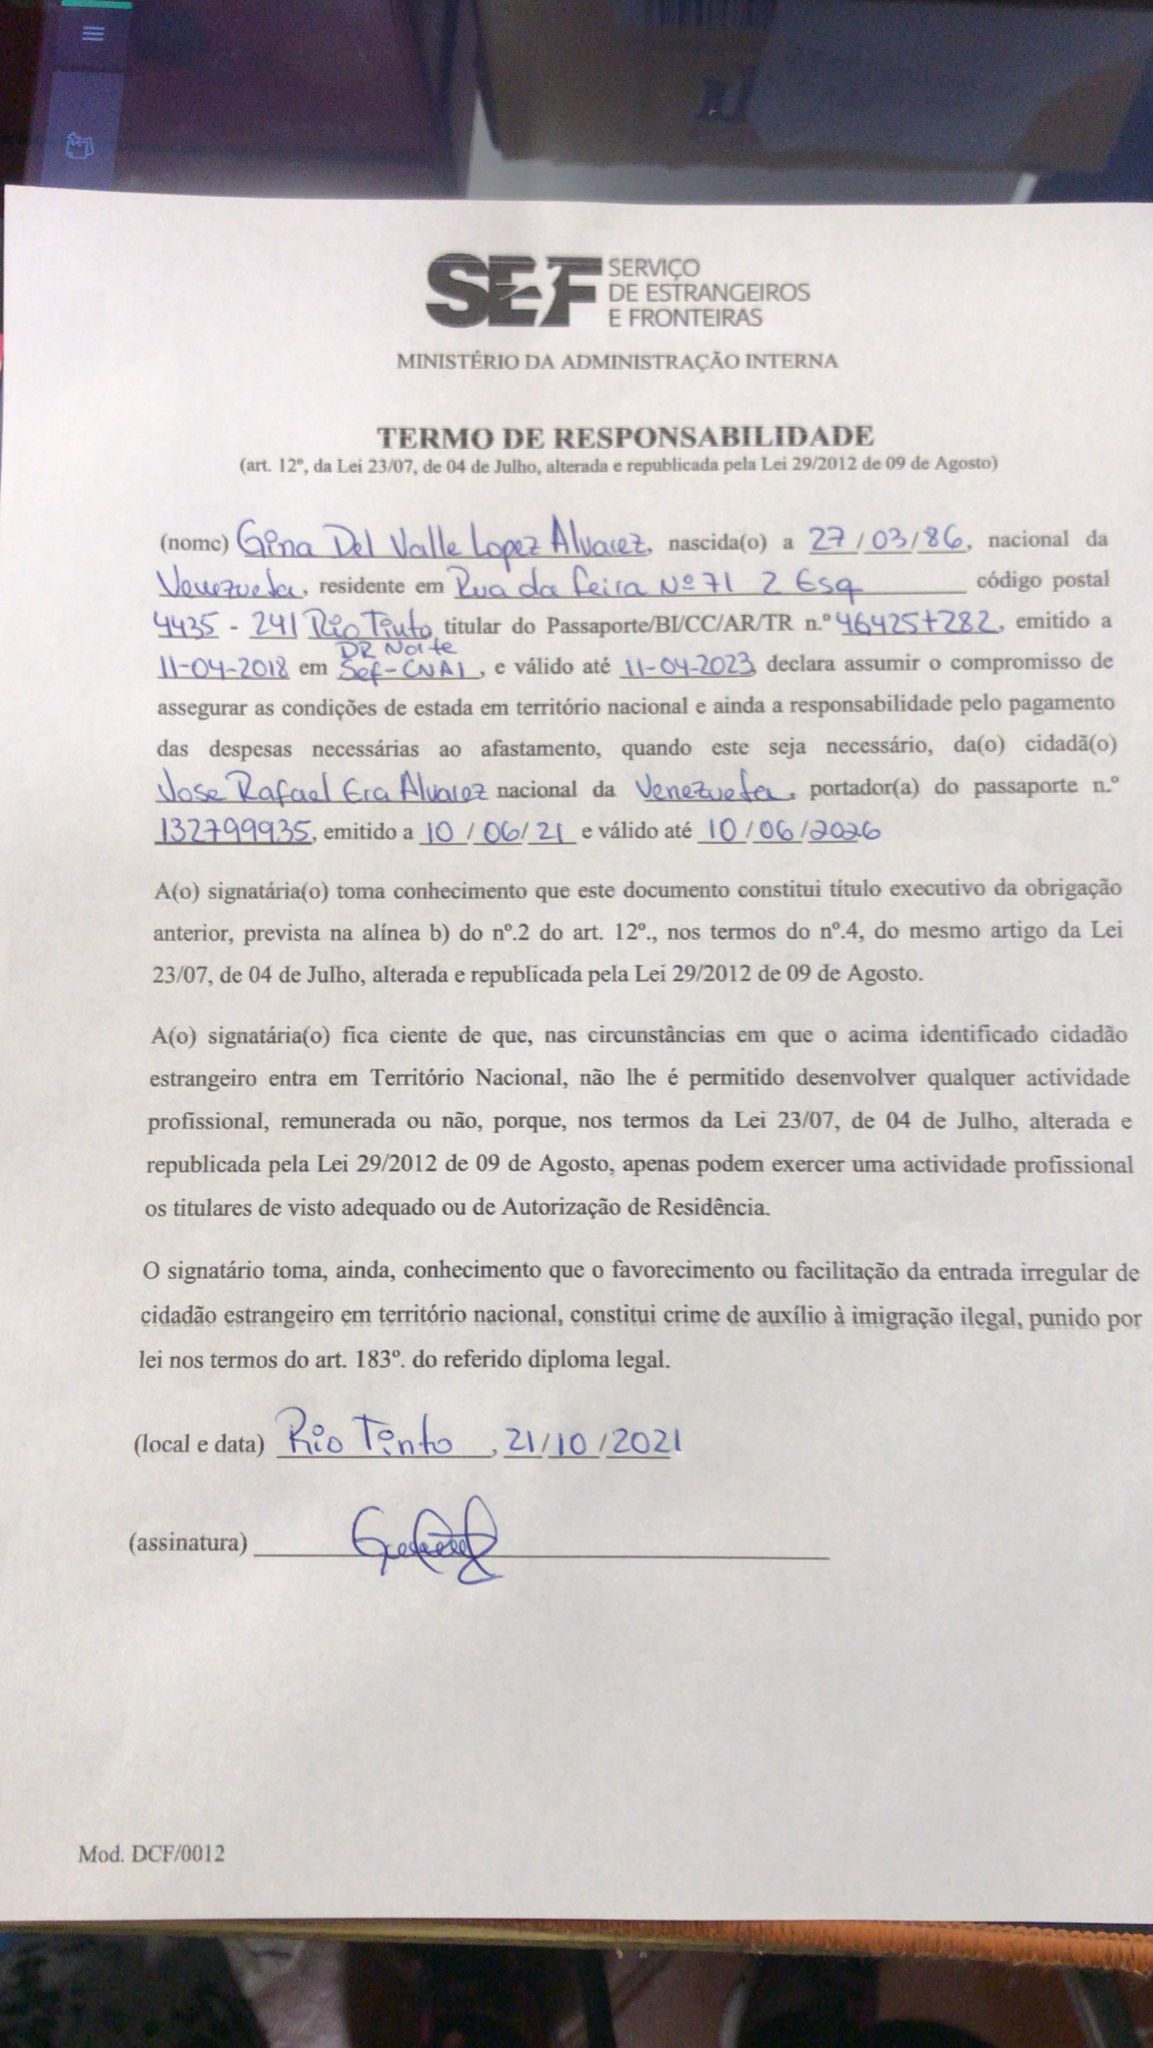 SEF SERVIÇO
DE ESTRANGEIROS
E FRONTEIRAS
MINISTÉRIO DA ADMINISTRAÇÃO INTERNA
TERMO DE RESPONSABILIDADE
(art. 12º, da Lei 23/07, de 04 de Julho, alterada e republicada pela Lei 29/2012 de 09 de Agosto)
(nome) Gina Del Valle Lopez Alvarez, nascida(o) a 27/03/86, nacional da
Venezuela, residente em Rua da Feira Nº 71 2 Esq código postal
4435 - 241 Rio Tinto, titular do Passaporte/BI/CC/AR/TR n.º 46425+282, emitido a
DR Norte
11-04-2018 em Sef-CNAI, e válido até 11-04-2023 declara assumir o compromisso de
assegurar as condições de estada em território nacional e ainda a responsabilidade pelo pagamento
das despesas necessárias ao afastamento, quando este seja necessário, da(o) cidadã(o)
Jose Rafael Era Alvarez nacional da Venezuela, portador(a) do passaporte n.º
132799935, emitido a 10/06/21 e válido até 10/06/2026
A(o) signatária(o) toma conhecimento que este documento constitui título executivo da obrigação
anterior, prevista na alínea b) do nº.2 do art. 12º., nos termos do nº.4, do mesmo artigo da Lei
23/07, de 04 de Julho, alterada e republicada pela Lei 29/2012 de 09 de Agosto.
A(o) signatária(o) fica ciente de que, nas circunstâncias em que o acima identificado cidadão
estrangeiro entra em Território Nacional, não lhe é permitido desenvolver qualquer actividade
profissional, remunerada ou não, porque, nos termos da Lei 23/07, de 04 de Julho, alterada e
republicada pela Lei 29/2012 de 09 de Agosto, apenas podem exercer uma actividade profissional
os titulares de visto adequado ou de Autorização de Residência.
O signatário toma, ainda, conhecimento que o favorecimento ou facilitação da entrada irregular de
cidadão estrangeiro em território nacional, constitui crime de auxílio à imigração ilegal, punido por
lei nos termos do art. 183º. do referido diploma legal.
(local e data) Rio Tinto, 21/10/2021
(assinatura)
Mod. DCF/0012